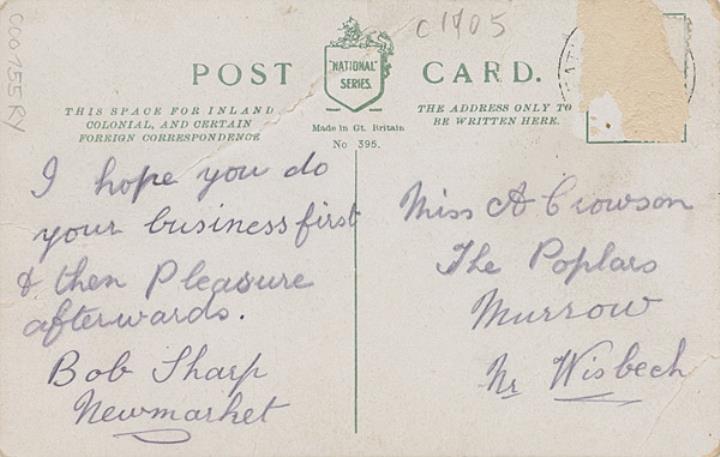 C00755RY
c1905
POST CARD.
"NATIONAL"
SERIES.
THIS SPACE FOR INLAND
COLONIAL, AND CERTAIN
FOREIGN CORRESPONDENCE
Made in Gt. Britain
No 395.
THE ADDRESS ONLY TO
BE WRITTEN HERE.
I hope you do
your business first
& then Pleasure
afterwards.
Bob Sharp
Newmarket
Miss A Crowson
The Poplars
Murrow
Nr Wisbech